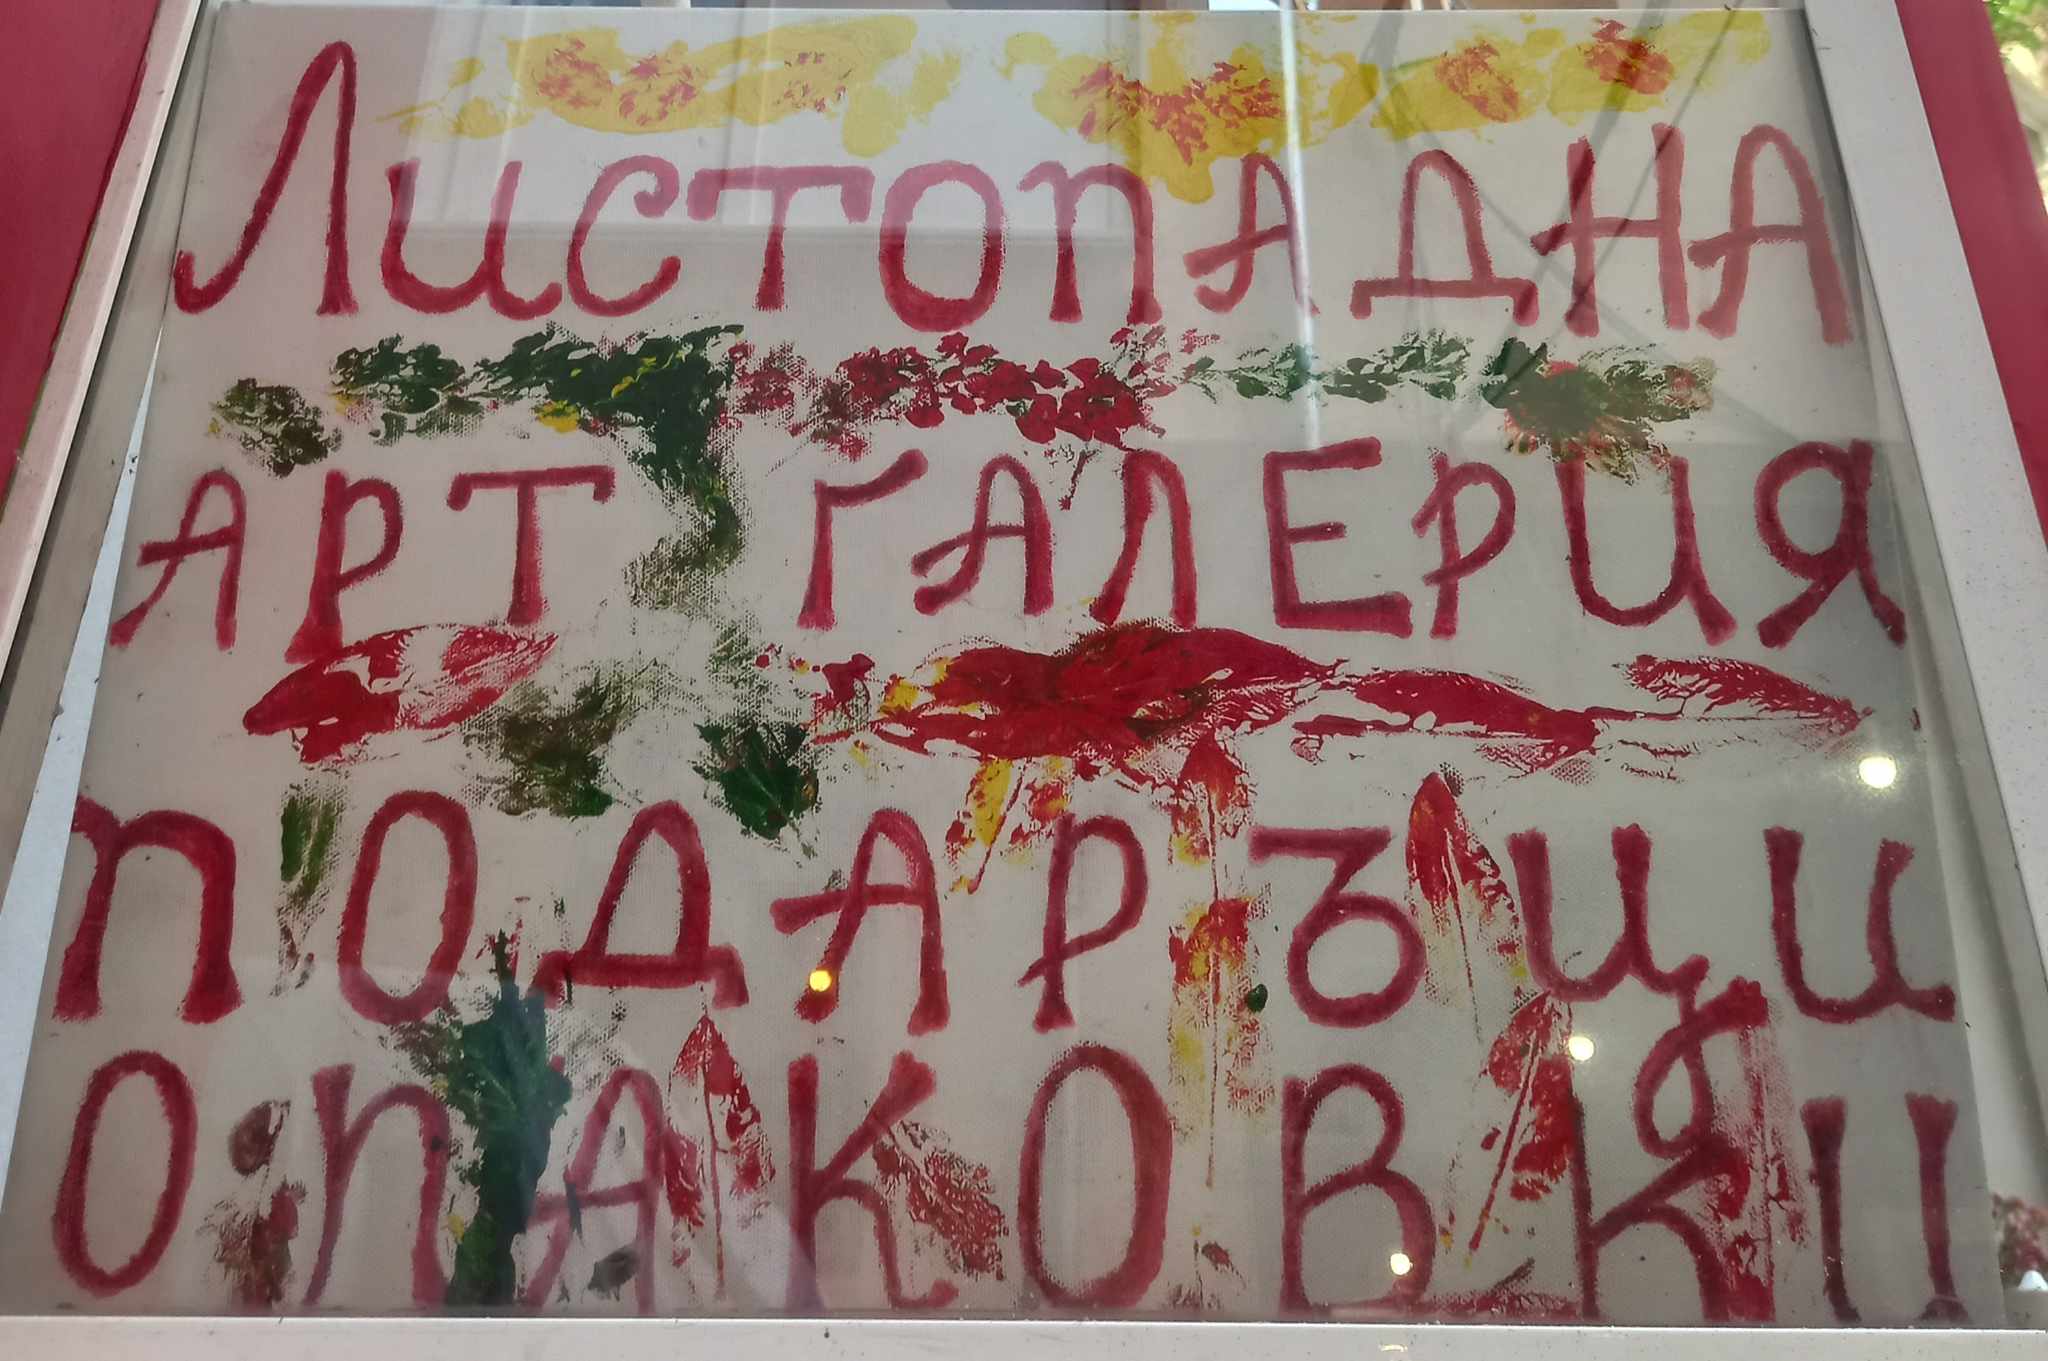 Листопадна
Арт Галерия
Подаръци
Опаковки